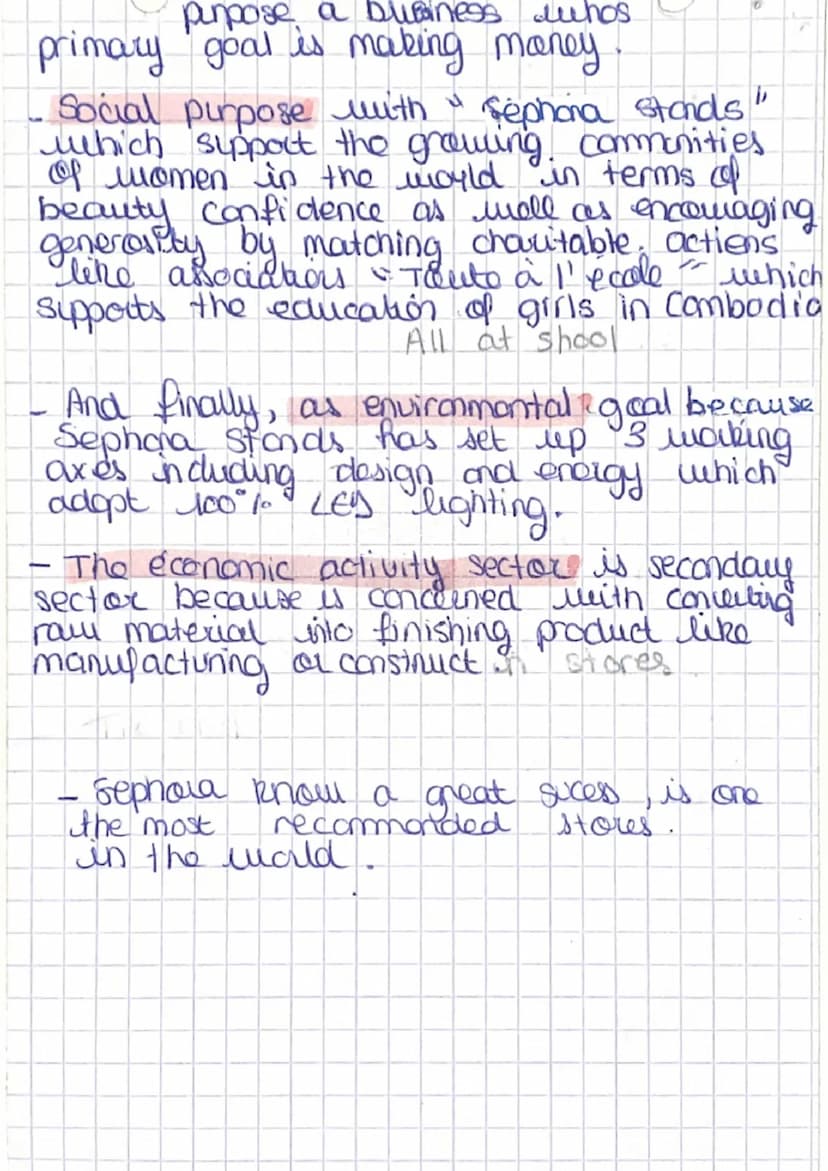 purpose a business whos
primary goal is making money.
- Social purpose with " Sephora Stands"
which support the growing communities
of women in the world in terms of
beauty confidence as well as encouraging
generosity by matching charitable actions
like associations "Toutes à l'école" which
supports the education of girls in Cambodia
All at shool
- And finally, as environmental goal because
Sephora Stands has set up 3 working
axes including design and energy which
adopt 100% LED lighting.
- The économic activity sector is secondary
sector because is concerned with converting
raw material into finishing product like
manufacturing or construct in stores
- Sephora know a great sucess, is one
the most recommanded stores.
in the world.